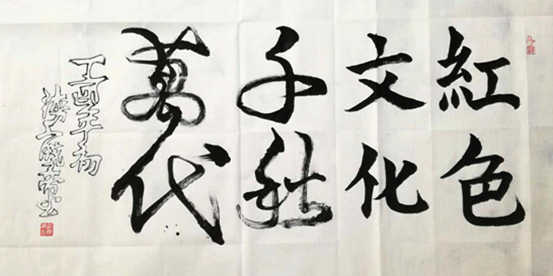 紅色
文化
千秋
萬代
丁酉年初